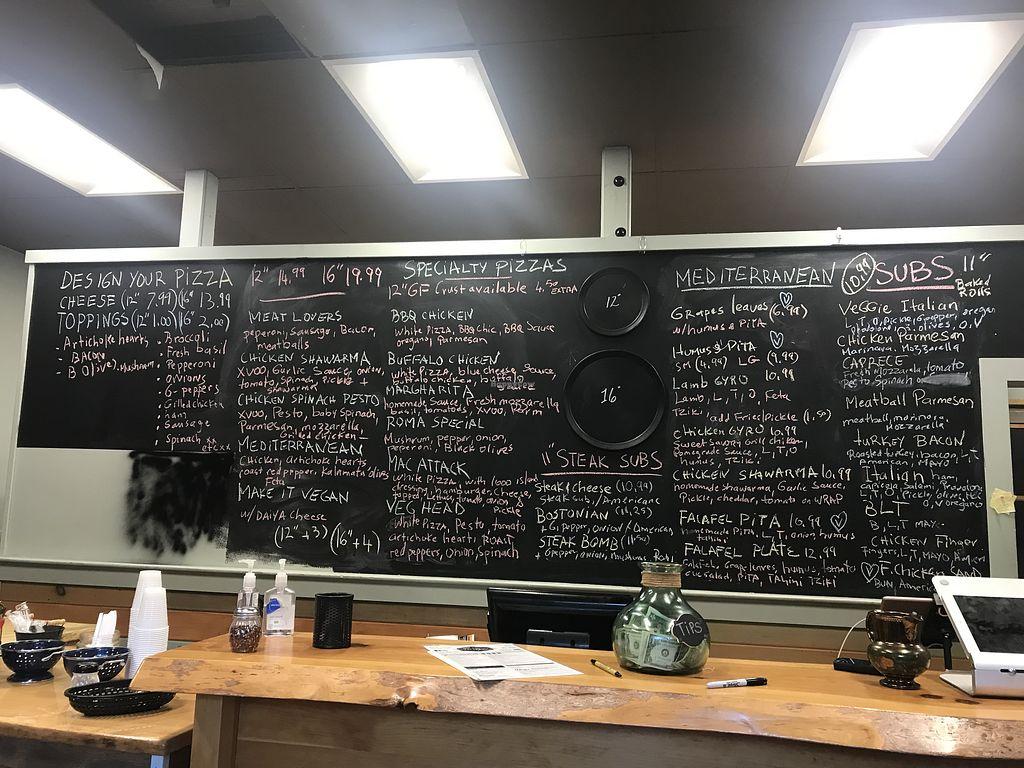 DESIGN YOUR PIZZA
CHEESE (12" 7.99) (16" 13.99
TOPPINGS (12" 1.00) (16" 2.00)
- Artichoke hearts
- BACON
- B Olives, Mushrum
• Broccoli
• Fresh basil
• Pepperoni
• onions
• G-peppers
• Grilled chicken
• ham
• Sausage
• Spinach etcxx
12" 14.99 16" 19.99
MEAT LOVERS
peperoni, Sausage, Bacon,
meatballs
CHICKEN SHAWARMA
XVOO, Garlic Sauce, onion,
tomato, Spinach, Pickle +
shawarma
CHICKEN SPINACH PESTO
XVOO, Pesto, baby Spinach,
Parmesan, mozzarella,
Grilled chicken
MEDITERRANEAN
Chicken, Artichoke hearts,
roast red pepper, Kalamata olives
Feta
MAKE IT VEGAN
w/ DAIYA Cheese
(12" +3) (16" +4)
SPECIALTY PIZZAS
12" GF Crust available 4.50 EXTRA
BBQ CHICKEN
White Pizza, BBQ Chic, BBQ Sauce
oregano, parmesan
BUFFALO CHICKEN
white Pizza, blue cheese Sauce,
buffalo chicken, buffalo
MARGHARITA
homemade Sauce, Fresh mozzarella
basil, tomatoes, XVOO, Perm
ROMA SPECIAL
Mushrum, pepper, onion,
Peperoni, Black olives
MAC ATTACK
White Pizza, with 1000 island
dressing, hamburger, Cheese,
topped, Lettuce, tomato, onion
Pickle
VEG HEAD
White Pizza, Pesto, tomato
artichoke hearts, ROAST
red peppers, onion, Spinach
12"
16"
"STEAK SUBS
Steak & cheese (10.99)
Steak sub, American
BOSTONIAN
+ G. pepper, onion + American
STEAK BOMB
MEDITERRANEAN
Grapes leaves (6.99)
w/ humus & PITA
Humus & PITA
SM (4.99) LG (9.99)
Lamb GYRO 10.99
Lamb, L, T, O, Feta
Tziki 'add Fries Pickle (1.50)
chicken GYRO 10.99
Sweet Savory Grill chicken,
Pomegrade Sauce, L, T, O
humus, Tziki
CHICKEN SHAWARMA 10.99
homemade Shawarma, Garlic Sauce
Pickle, cheddar, tomato on WRAP
FALAFEL PITA 10.99
homemade Pita, L, T, onion, humus
tahini
FALAFEL PLATE 12.99
Falafel, Grape leaves, humus, tomato
Cuc Salad, PITA, TAhini Tziki
10.99 SUBS 11"
Baked
ROLLS
VeGGie Italian
Chicken Parmesan
Marinara, Mozzarella
CAPRECE
Fresh Mozzarella, tomato
pesto Spinach
Meatball Parmesan
meatball, marinara
Mozzarella
TURKEY BACON
Roasted turkey, bacon, L, T
American, MAYO
Italian
BLT
B, L, T MAY
CHICKEN FINGER
Fingers, L, T, MAYO
F. Chicken Sand
TIPS